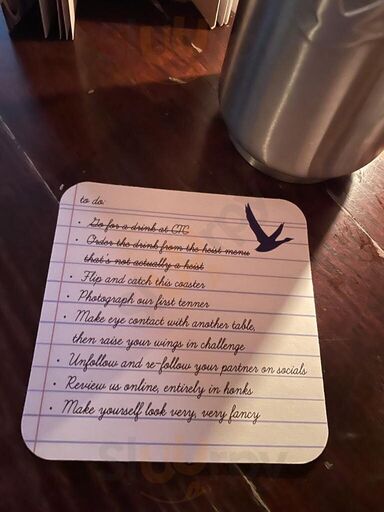 to do:
· Go for a drink at CTC
· Order the drink from the heist menu
that's not actually a heist
· Flip and catch this coaster
· Photograph our first tenner
· Make eye contact with another table,
then raise your wings in challenge
· Unfollow and re-follow your partner on socials
· Review us online, entirely in honks
· Make yourself look very, very fancy